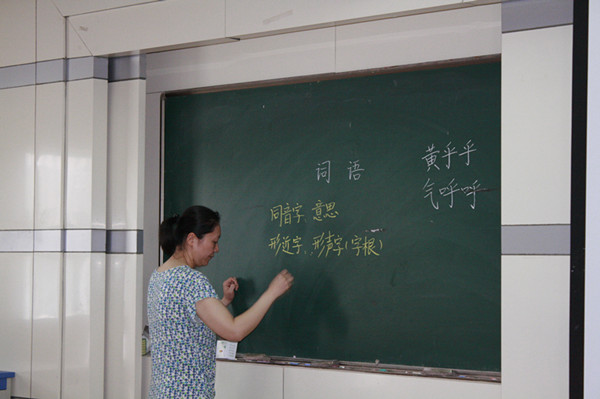 词语
同音字 意思
形近字、形声字(字根)
黄乎乎
气呼呼